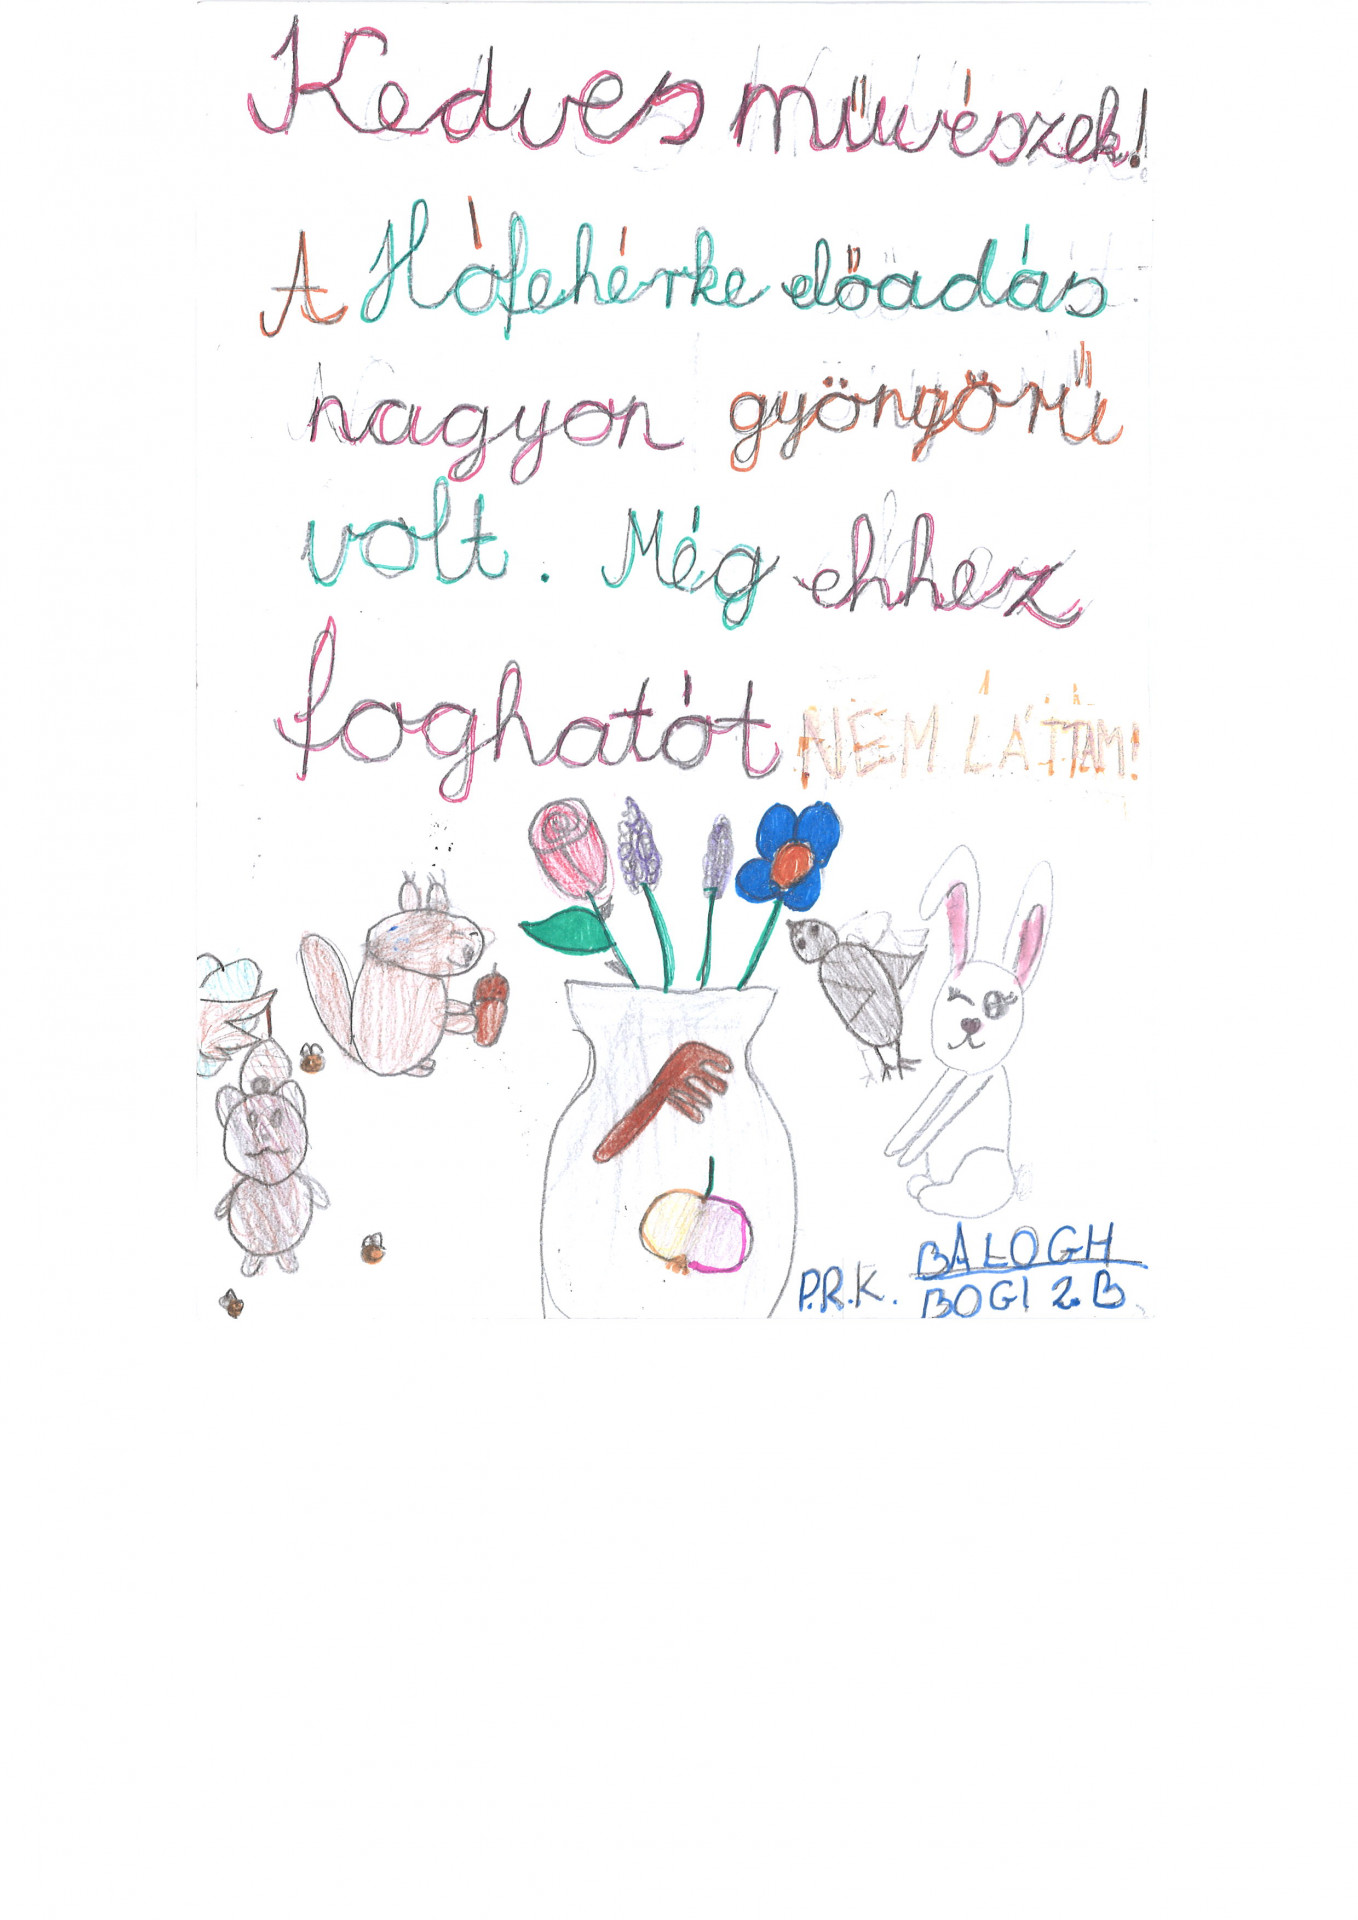 Kedves művészek!
A Hófehérke előadás
nagyon gyöngörű
volt. Még ehhez
foghatót NEM LÁTTAM!
P.R.K. BALOGH
BOGI 2.B